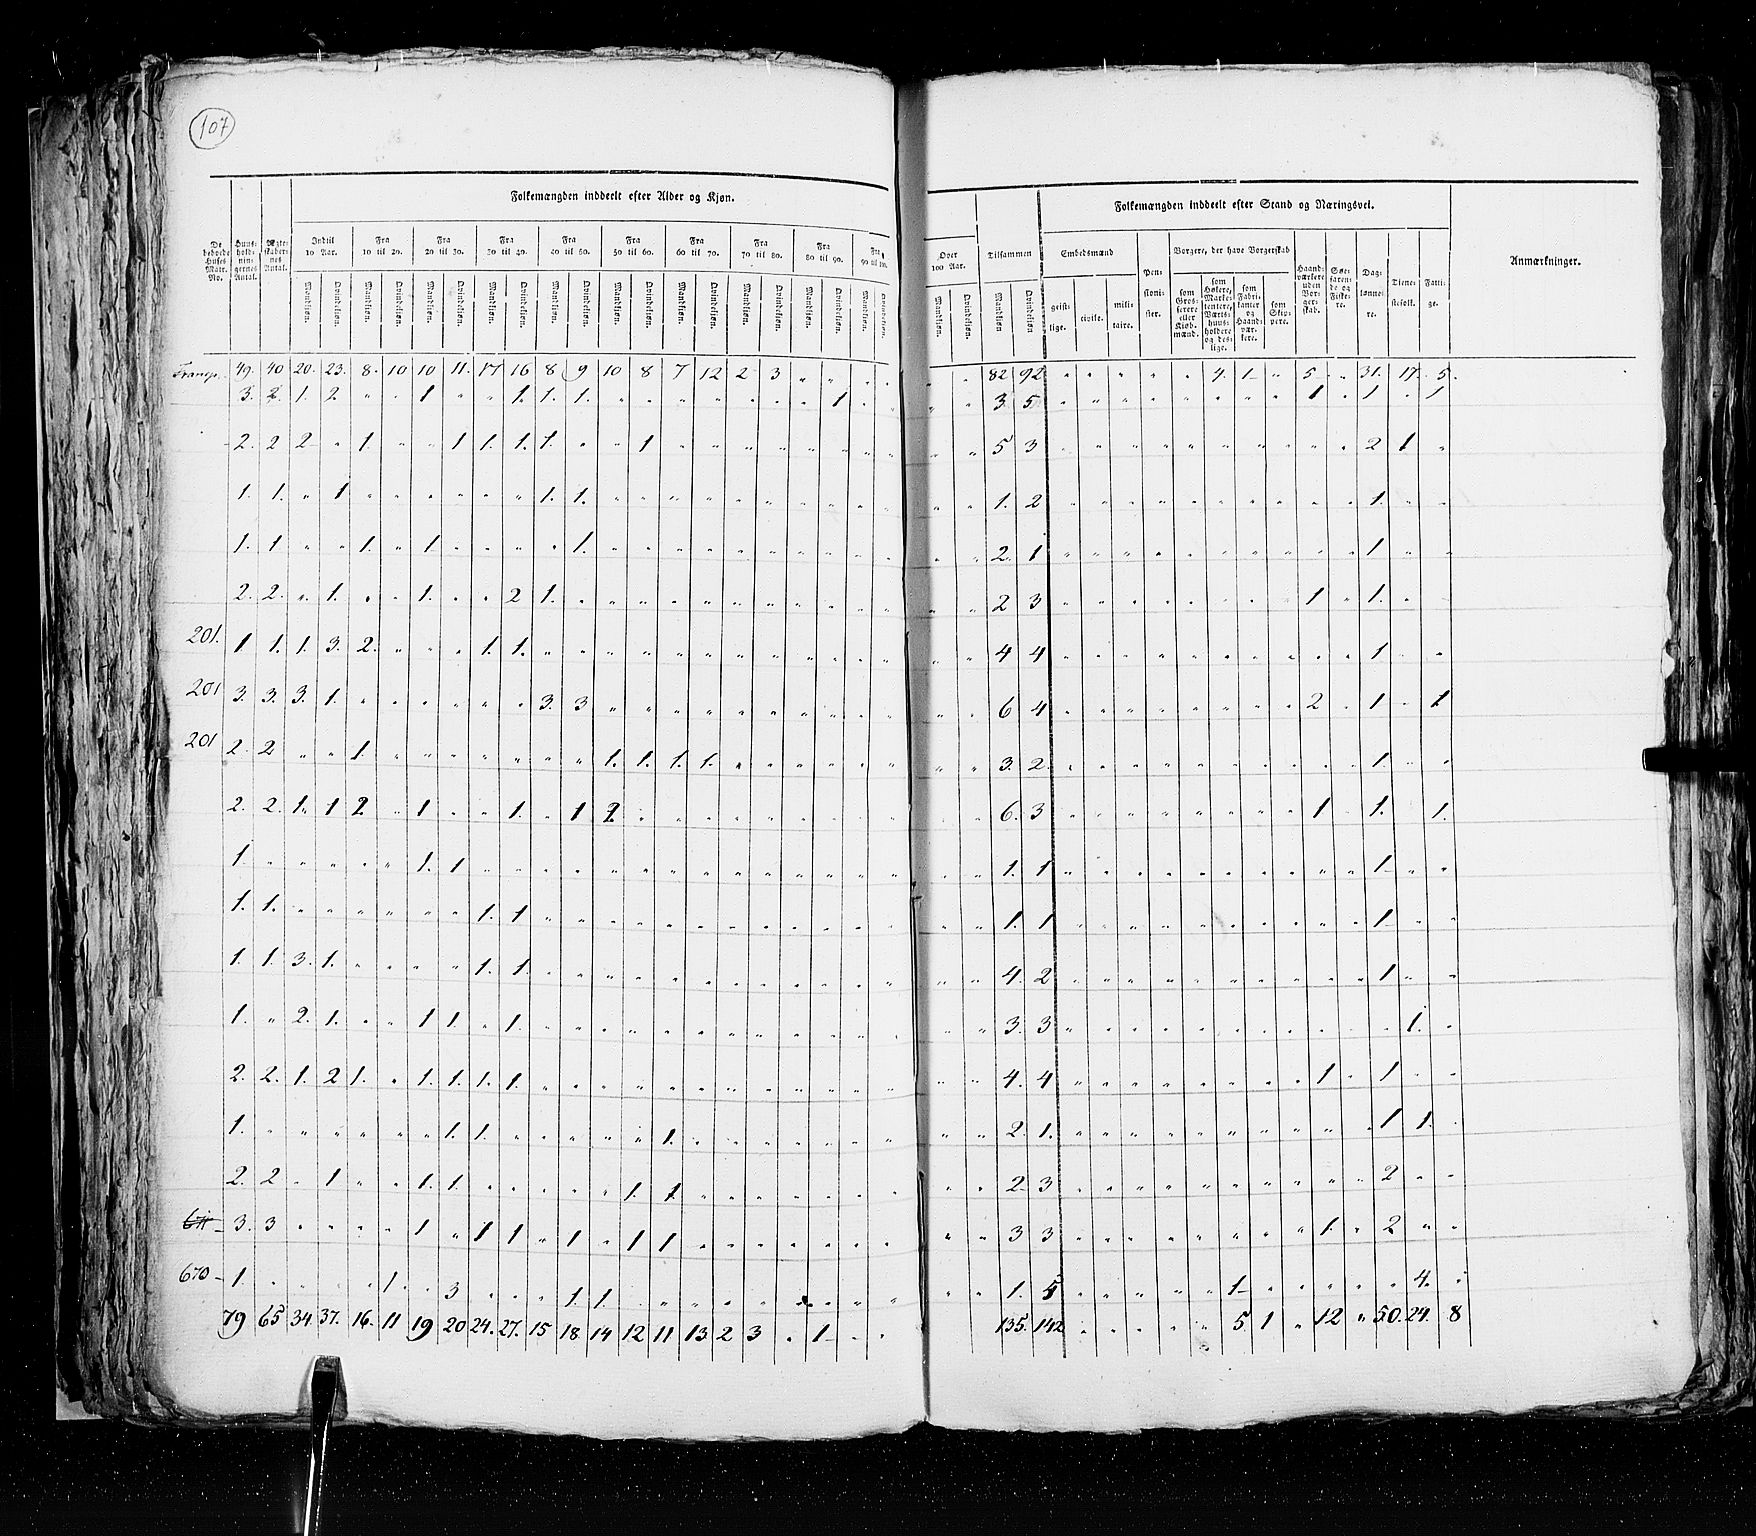 107
Folkemængden inddeelt efter Alder og Kjøn.
Folkemængden inddeelt efter Stand og Næringsvei.
De beboede Huses Matr. No.
Huus-holdnin-gernes Antal.
Ægte-skaber-nes Antal.
Indtil 10 Aar.
Fra 10 til 20.
Fra 20 til 30.
Fra 30 til 40.
Fra 40 til 50.
Fra 50 til 60.
Fra 60 til 70.
Fra 70 til 80.
Fra 80 til 90.
Fra 90 til 100.
Over 100 Aar.
Tilsammen
Mandkjøn. Qvindekjøn.
Embedsmænd
geist-lige.
civile.
mili-taire.
Pen-sioni-ster.
Borgere, der have Borgerskab
som Gros-serere eller Kjøb-mænd.
som Høkere, Marke-tentere, Værts-huus-holdere og des-lige.
som Fabri-kanter og Haand-vær-kere.
som Skip-pere.
Haand-værkere uden Bor-ger-skab.
Søe-farende og Fiske-re.
Dag-lønne-re.
Tiene-stefolk.
Fatti-ge.
Anmærkninger.
Transp. 49. 40 20. 23. 8. 10 10 11. 17 16 8 9 10 8 7 12 2 3 " " " " " " 82 92 " " " " " 4. 1 " 5 " 31. 17. 5.
3. 2. 1. 2 " " 1 " " 1. 1. 1. " " " " " " " 1 " " " " 3. 5 " " " " " " " " 1 " 1 " 1
2. 2 2 " 1. " " 1 1. 1. 1. " " 1 " " " " " " " " " " 5 3 " " " " " " " " " " 2 1 "
1. 1. " 1 " " " " " " 1. 1. " " " " " " " " " " " " 1. 2 " " " " " " " " " " 1. " "
1. 1 " " 1. " 1. " " " " 1. " " " " " " " " " " " " 2. 1 " " " " " " " " " " 1 " "
2. 2. " 1. " " 1. " " 2 1. " " " " " " " " " " " " " 2 3 " " " " " " " " 1 " 1. " "
201. 1 1. 1. 3. 2. " " " 1. 1. " " " " " " " " " " " " " " 4 4 " " " " " " " " " " 1 " "
201 3. 3. 3. 1. " " " " " " 3. 3 " " " " " " " " " " " " 6 4 " " " " " " " " 2 " 1 " 1
201 2. 2 " " 1. " " " " " " " 1. 1. 1. 1. " " " " " " " " 3. 2. " " " " " " " " " " 1. " "
2. 2. 1. 1 2 " 1 " " 1. " 1 2 " " " " " " " " " " " 6. 3 " " " " " " " " 1 " 1. " 1.
1. " " " " " 1. 1 " " " " " " " " " " " " " " " " 1. 1 " " " " " " " " " " 1 " "
1. 1. " " " " " " 1. 1 " " " " " " " " " " " " " " 1. 1 " " " " " " " " " " 1 " "
1. 1. 3. 1. " " " " 1. 1. " " " " " " " " " " " " " " 4. 2 " " " " " " " " " " 1 " "
1. " 2. 1. " " 1 1. " 1. " " " " " " " " " " " " " " 3. 3 " " " " " " " " " " " 1. "
2. 2. 1. 2 1. " 1. 1. 1. 1. " " " " " " " " " " " " " " 4. 4 " " " " " " " " 1 " 1 " "
1. " " " " " " 1. 1. " " " " " 1. " " " " " " " " " 2. 1. " " " " " " " " " " 1 1. "
2. 2 " 1 " " 1. 1. " " " " " 1. 1. " " " " " " " " " 2 3 " " " " " " " " " " 2 " "
3. 3 " " " " 1 " 1 1 " 1 " 1 1 " " " " " " " " " 3 3 " " " " " " " " 1. " 2 " "
670 1. " " " " 1. " 3 " " " 1. 1. " " " " " " " " " " " 1. 5 " " " " " 1 " " " " " 4. "
79 65 34. 37. 16. 11 19 20 24. 27. 15 18 14 12 11 13 2 3 " 1 " " 135. 142 " " " " " 5 1 " 12 " 50. 24. 8